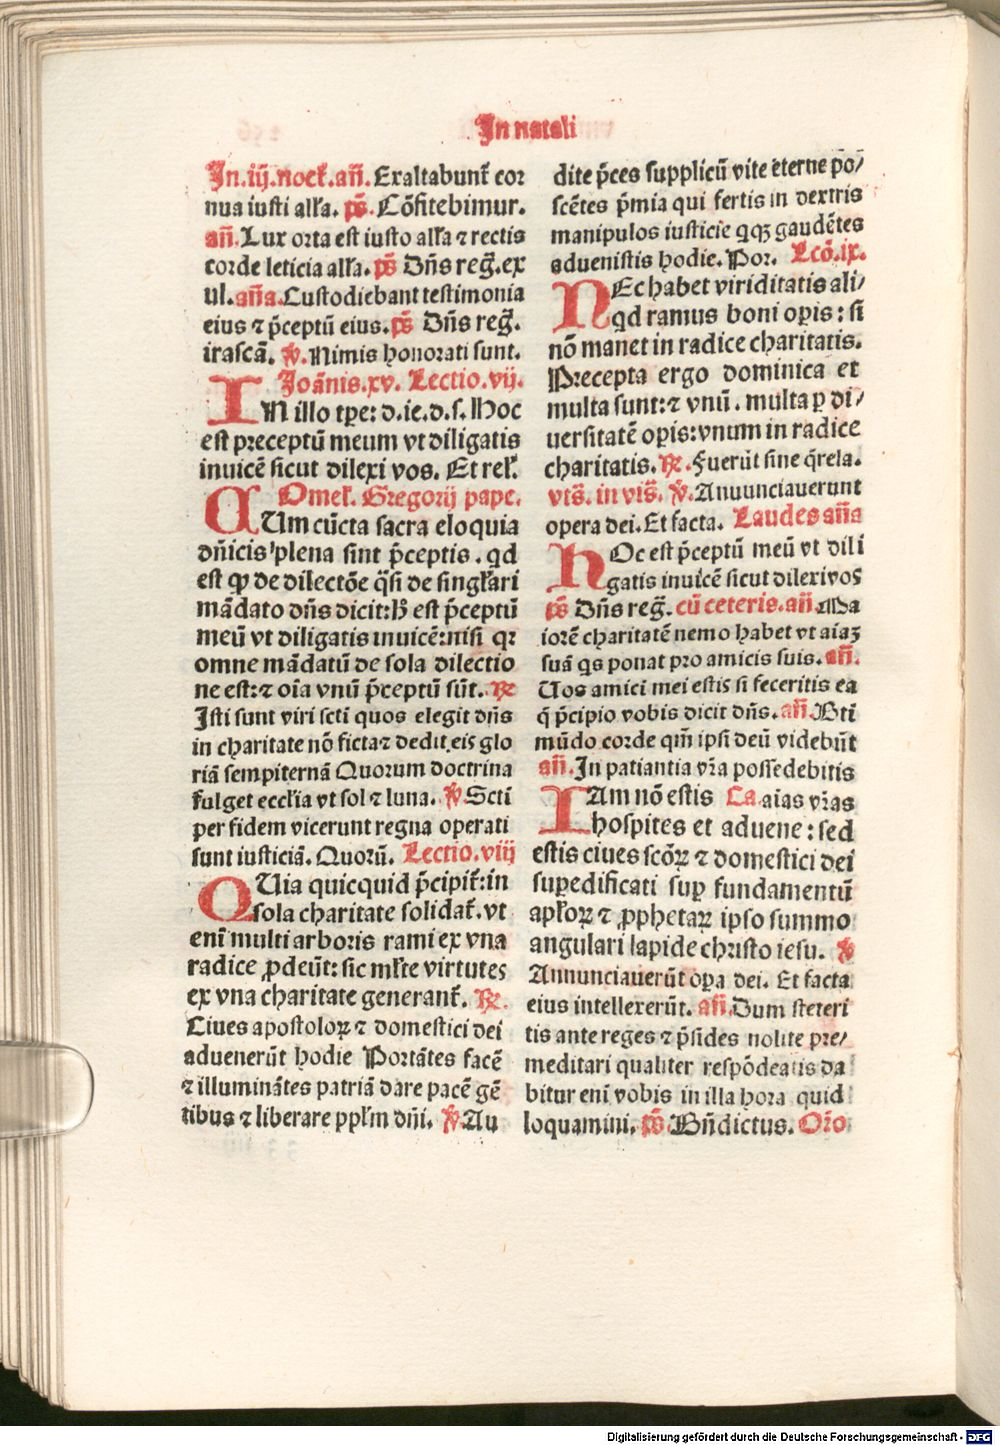 In natali
In.iij.noct̄.an̄. Exaltabunt̄ cor
nua iusti alľa. ps̄. Cōfitebimur.
an̄. Lux orta est iusto alľa ⁊ rectis
corde leticia alľa. ps̄ Dn̄s reg̃. ex
ul. an̄a. Custodiebant testimonia
eius ⁊ p̄ceptū eius. ps̄ Dn̄s reg̃.
irascā. ℣. Nimis honorati sunt.
Joānis.xv. Lectio.vij.
IN illo tꝑe: d.ie.d.s. Hoc
est preceptū meum vt diligatis
inuicē sicut dilexi vos. Et reľ.
Omeľ. Gregorij pape.
CUm cūcta sacra eloquia
dn̄icis plena sint p̄ceptis. qd
est ꝙ de dilectōe q̄si de singľari
mādato dn̄s dicit: H̄ est p̄ceptū
meū vt diligatis inuicē: nisi qꝛ
omne mādatū de sola dilectio
ne est: ⁊ oīa vnū p̄ceptū sūt. ℟
Isti sunt viri scti quos elegit dn̄s
in charitate nō ficta ⁊ dedit eis glo
riā sempiternā Quorum doctrina
fulget eccľia vt sol ⁊ luna. ℣ Scti
per fidem vicerunt regna operati
sunt iusticiā. Quorū. Lectio.viij
QUia quicquid p̄cipit̄: in
sola charitate solidat̄. vt
eni multi arboris rami ex vna
radice ꝓdeūt: sic mľte virtutes
ex vna charitate generant̄. ℟.
Ciues apostoloꝝ ⁊ domestici dei
aduenerūt hodie Portātes facē
⁊ illuminātes patriā dare pacē gē
tibus ⁊ liberare ppľm dn̄i. ℣. Au
dite p̄ces supplicū vite eterne po/
scētes p̄mia qui fertis in dextris
manipulos iusticie qqꝫ gaudētes
aduenistis hodie. Por. Lcō.ix.
NEc habet viriditatis ali/
qd ramus boni oꝑis: si
nō manet in radice charitatis.
Precepta ergo dominica et
multa sunt: ⁊ vnū. multa ꝑ di/
uersitatē oꝑis: vnum in radice
charitatis. ℟. Fuerūt sine q̄rela.
vts̄. in vis̄. ℣. Anuunciauerunt
opera dei. Et facta. Laudes an̄a
HOc est p̄ceptū meū vt dili
gatis inuicē sicut dilexi vos
ps̄ Dn̄s reg̃. cū ceteris. an̄. Ma
iorē charitatē nemo habet vt aiaꝫ
suā qs ponat pro amicis suis. an̄.
Uos amici mei estis si feceritis ea
q̄ p̄cipio vobis dicit dn̄s. an̄. Bti
mūdo corde qm̄ ipsi deū videbūt
an̄. In patiantia vr̄a possedebitis
IAm nō estis Ca. aias vr̄as
hospites et aduene: sed
estis ciues scōꝝ ⁊ domestici dei
suꝑedificati suꝑ fundamentū
apľoꝝ ⁊ ꝓphetaꝝ ipso summo
angulari lapide christo iesu. ℣
Annunciauerūt oꝑa dei. Et facta
eius intellexerūt. an̄. Dum steteri
tis ante reges ⁊ p̄sides nolite pre/
meditari qualiter respōdeatis da
bitur eni vobis in illa hora quid
loquamini. ps̄. Bn̄dictus. Or̄o
Digitalisierung gefördert durch die Deutsche Forschungsgemeinschaft - DFG